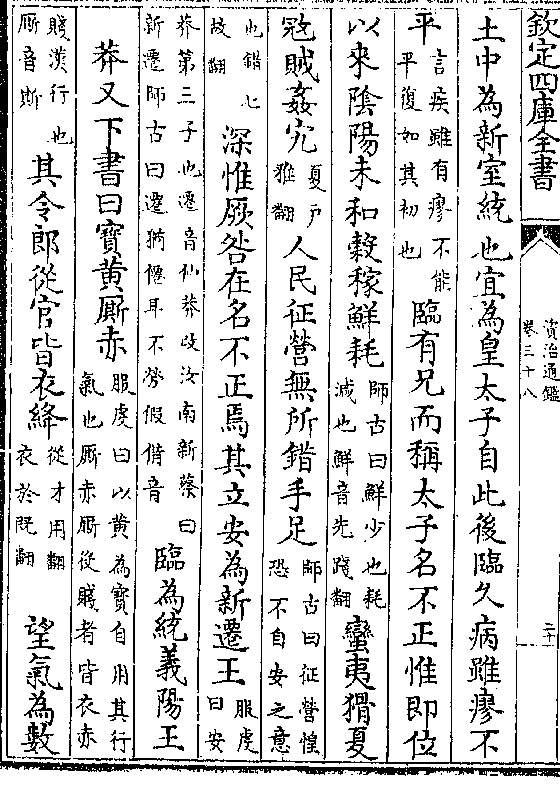 欽定四庫全書
資治通鑑
卷三十八
二十
土中為新室統也宜為皇太子自此後臨久病雖瘳不
平言疾雖有瘳不能平復如其初也臨有兄而稱太子名不正惟即位
以來陰陽未和穀稼鮮耗師古曰鮮少也耗減也鮮音先踐翻蠻夷猾夏
冦賊姦宄夏戶雅翻人民征營無所錯手足師古曰征營惶恐不自安之意
也錯七故翻深惟厥咎在名不正焉其立安為新遷王服虔曰安
莽第三子也遷音仙莽改汝南新蔡曰新遷師古曰遷猶僊耳不勞假借音臨為統義陽王
莽又下書曰寶黄厮赤服虔曰以黄為寶自用其行氣也厮赤厮役賤者皆衣赤
賤漢行也厮音斯其令郎從官皆衣絳從才用翻衣於既翻望氣為數